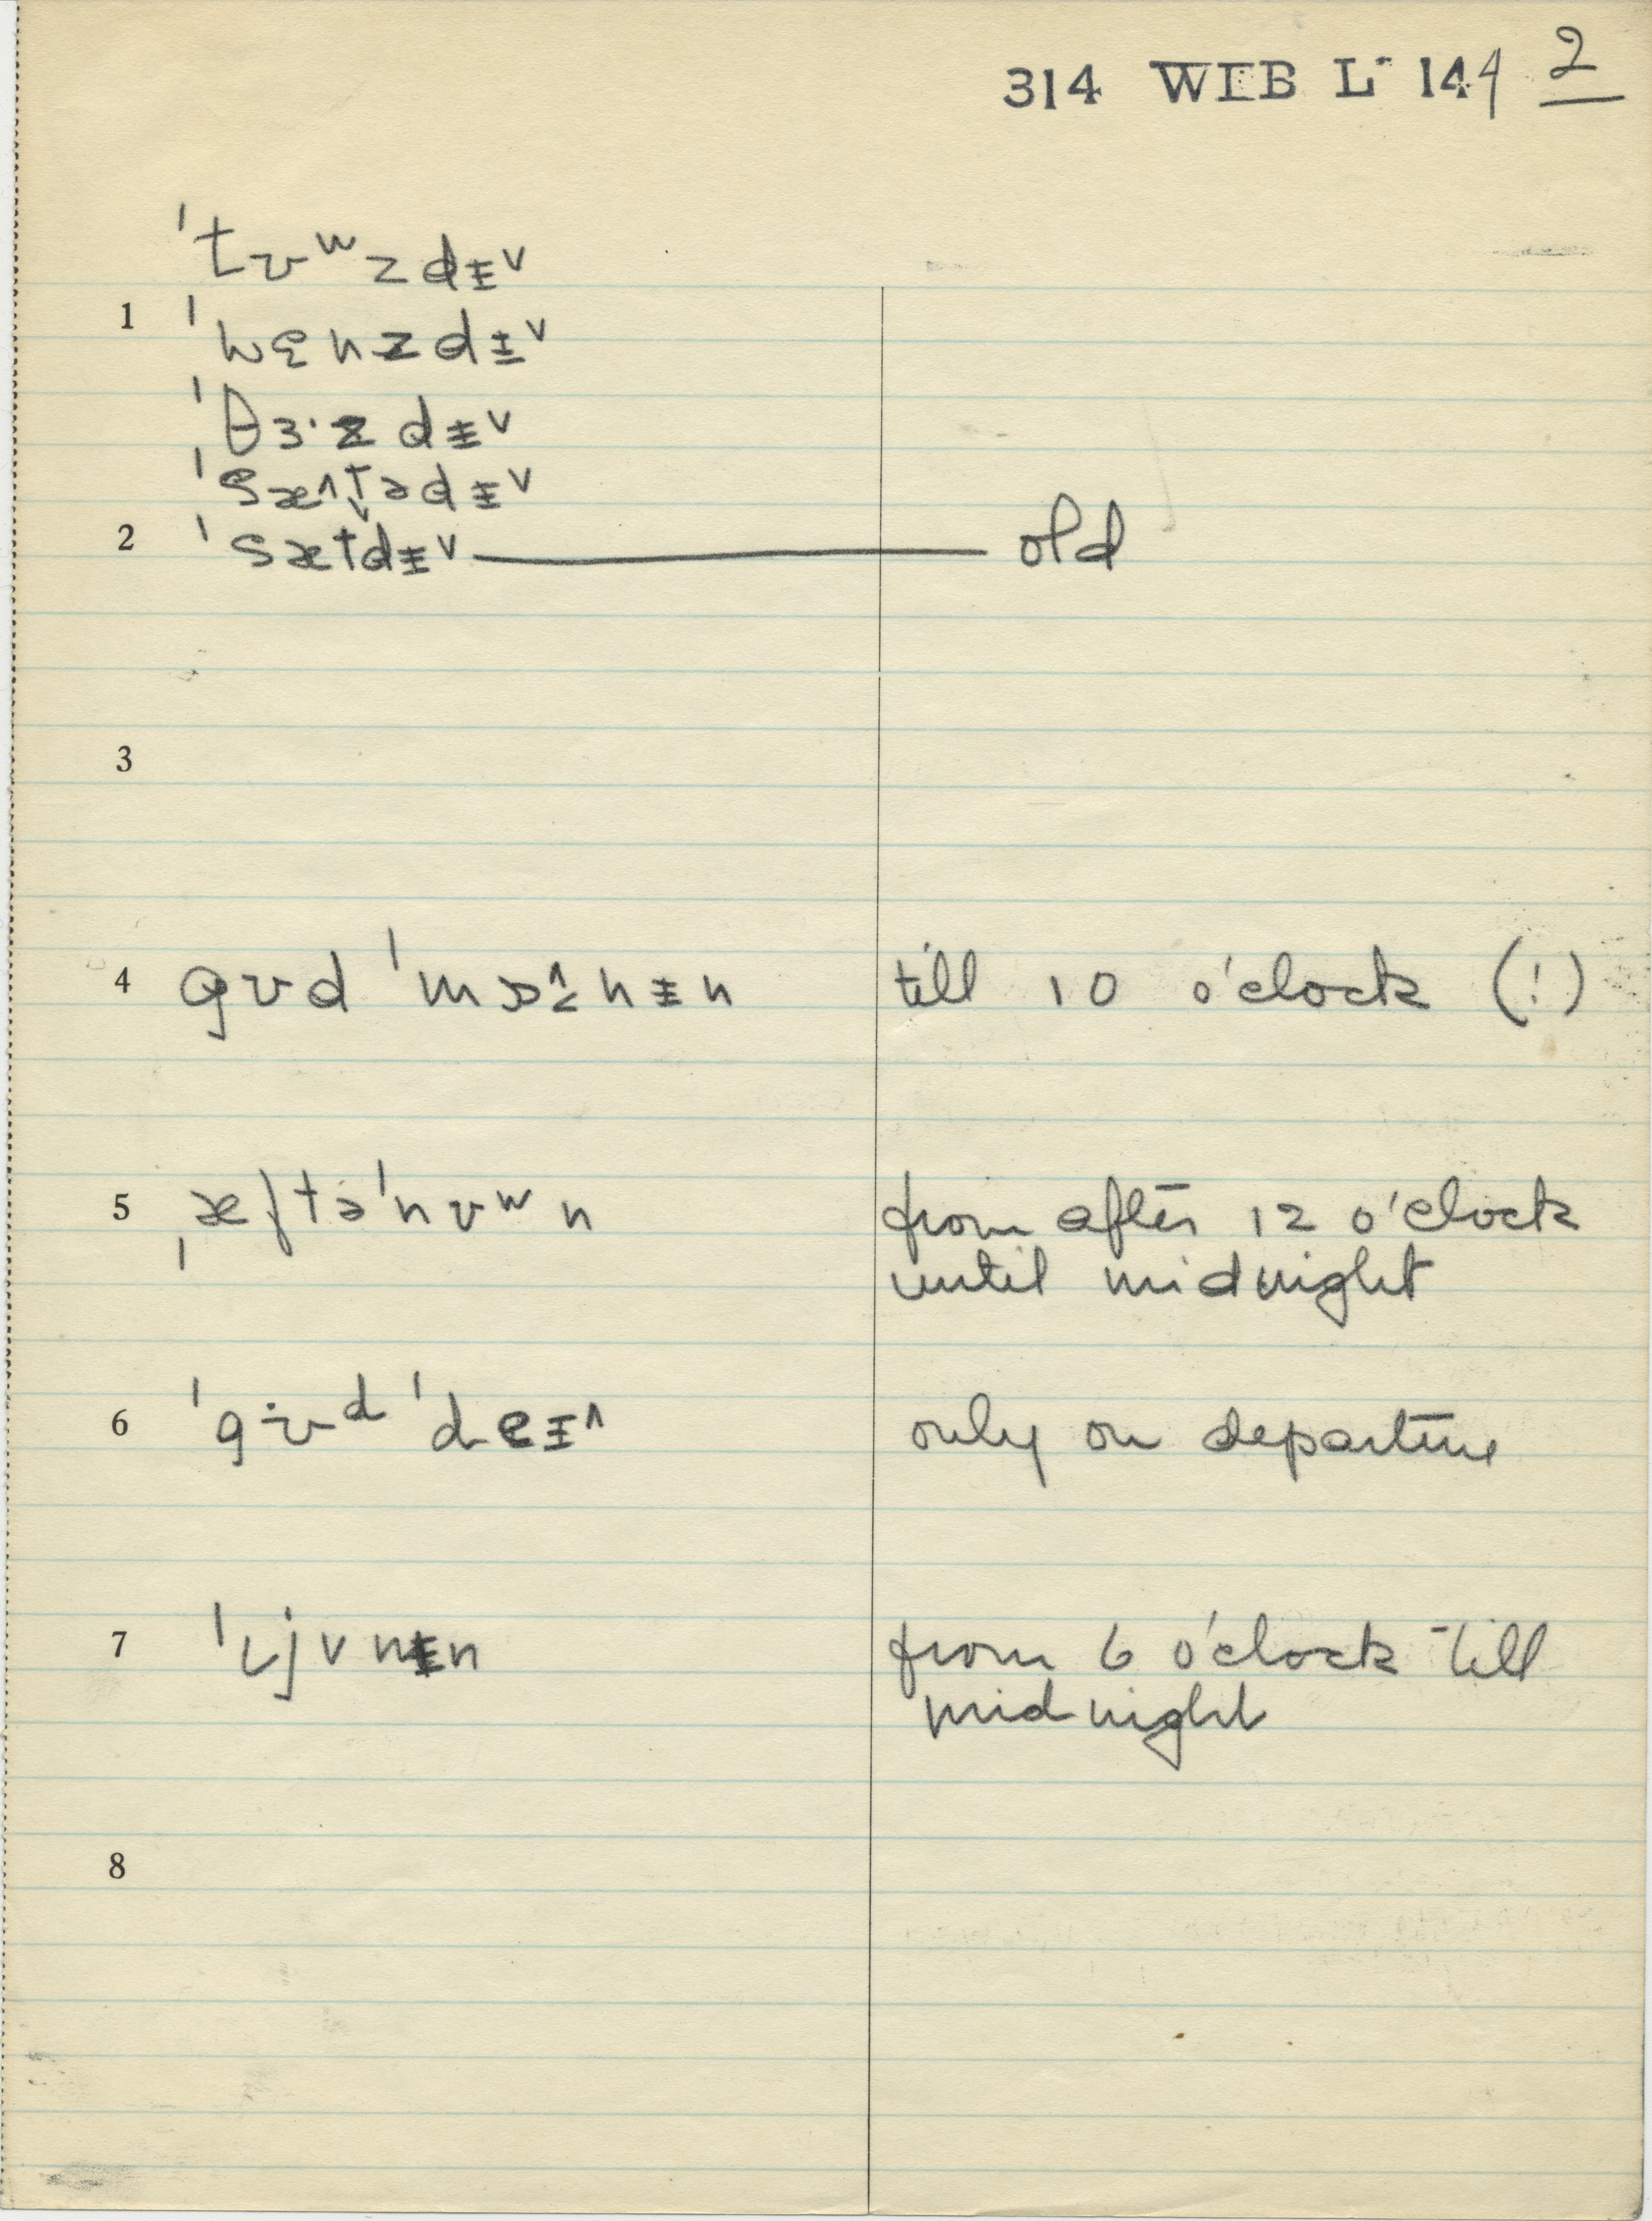 314 WIB L 144 2
ˈtʊʷzdɪ̵ˇ
1 ˈwɛnzdɪ̵ˇ
ˈθɜ·zdɪ̵ˇ
ˈsæ˄tədɪ̵ˇ
2 ˈsætdɪ̵ˇ old
3
4 gʊd ˈmɒ˄nɪ̵n till 10 o'clock (!)
5 ˌæftəˈnʊʷn from after 12 o'clock
until midnight
6 ˈgʊᵈ ˈdeɪ̵˄ only on departure
7 ˈijvnɪ̵n from 6 o'clock till
midnight
8